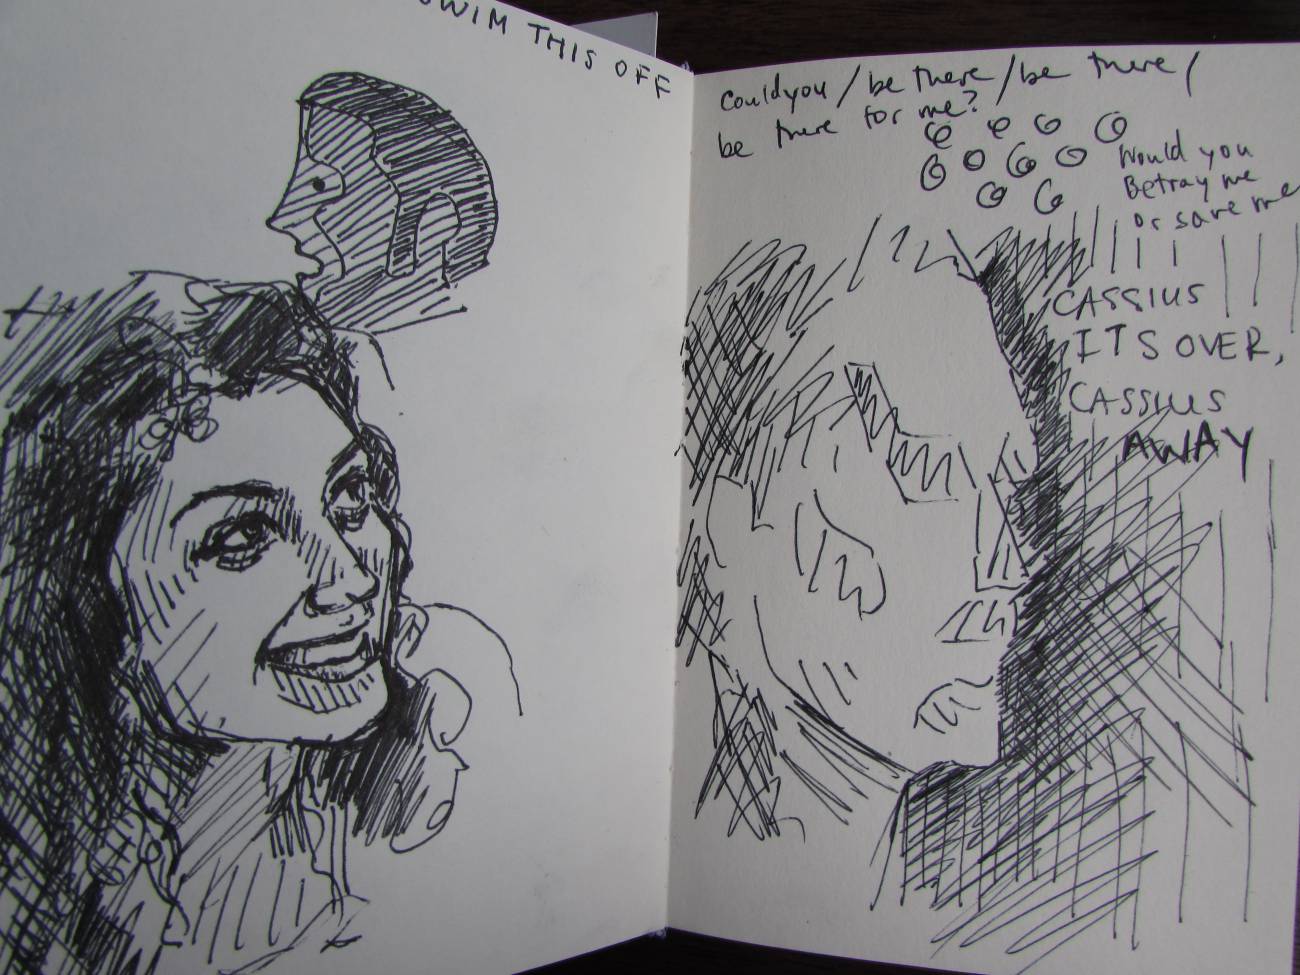 SWIM THIS OFF
couldyou / be there / be there /
be there for me?
Would you
Betray me
or save me
CASSIUS
ITS OVER,
CASSIUS
AWAY